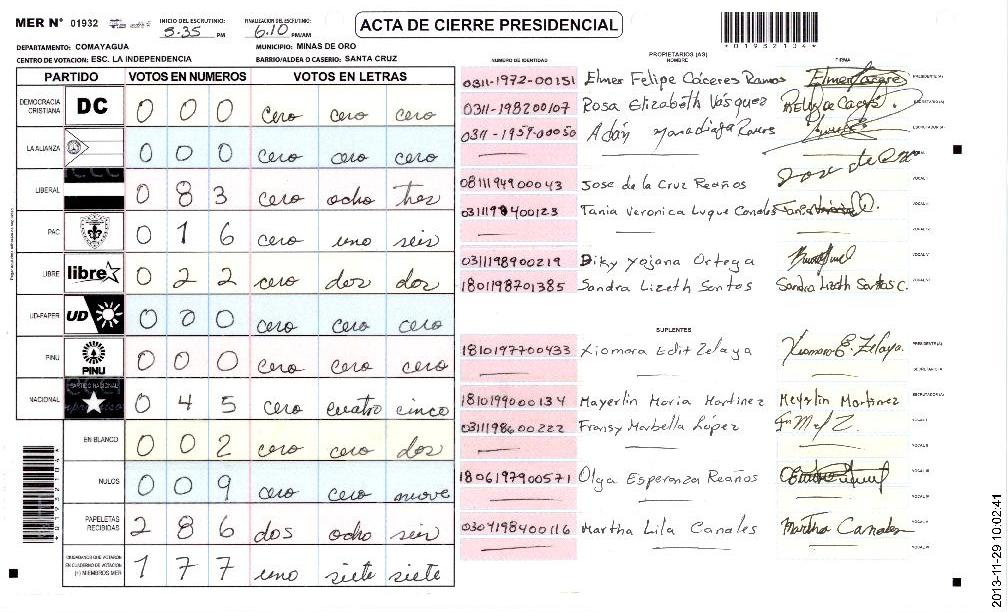 MER N° 01932
INICIO DEL ESCRUTINIO:
5.35 PM
FINALIZACION DEL ESCRUTINIO:
6.10 PM/AM
ACTA DE CIERRE PRESIDENCIAL
*01932134*
DEPARTAMENTO: COMAYAGUA
MUNICIPIO: MINAS DE ORO
CENTRO DE VOTACION: ESC. LA INDEPENDENCIA
BARRIO/ALDEA O CASERIO: SANTA CRUZ
PARTIDO VOTOS EN NUMEROS VOTOS EN LETRAS
DEMOCRACIA CRISTIANA DC 0 0 0 cero cero cero
LA ALIANZA 0 0 0 cero cero cero
LIBERAL 0 8 3 cero ocho tres
PAC 0 1 6 cero uno seis
LIBRE libre 0 2 2 cero dos dos
UD-FAPER UD 0 0 0 cero cero cero
PINU PINU 0 0 0 cero cero cero
NACIONAL PARTIDO NACIONAL 0 4 5 cero cuatro cinco
EN BLANCO 0 0 2 cero cero dos
NULOS 0 0 9 cero cero nueve
PAPELETAS RECIBIDAS 2 8 6 dos ocho seis
CIUDADANOS QUE VOTARON EN CUADERNO DE VOTACION (+) MIEMBROS MER 1 7 7 uno siete siete
NUMERO DE IDENTIDAD
PROPIETARIOS (AS)
NOMBRE
FIRMA
0311-1972-00151 Elmer Felipe Cáceres Ramos PRESIDENTE(A)
0311-198200107 Rosa Elizabeth Vásquez SECRETARIO(A)
0311-1959-00050 Adán ESCRUTADOR(A)
0811194900043 Jose de la Cruz Reaños Jose de Cruz VOCAL II
0311199400123 Tania Veronica Luque Canales VOCAL III
VOCAL IV
0311198900219 Diky Yojana Ortega VOCAL V
1801198701385 Sandra Lizeth Santos Sandra Lizeth Santos C. VOCAL VI
SUPLENTES
1810197700433 Xiomara Edit Zelaya Xiomara E. Zelaya. PRESIDENTE(A)
SECRETARIO(A)
1810199000134 Mayerlin Maria Martinez Meyrlin Martinez ESCRUTADOR(A)
0311198600222 Fransy Marbella López VOCAL I
VOCAL II
1806197900571 Olga Esperanza Reaños VOCAL III
VOCAL IV
0304198400116 Martha Lila Canales Martha Canales VOCAL V
VOCAL VI
*01932134*
2013-11-29 10:02:41